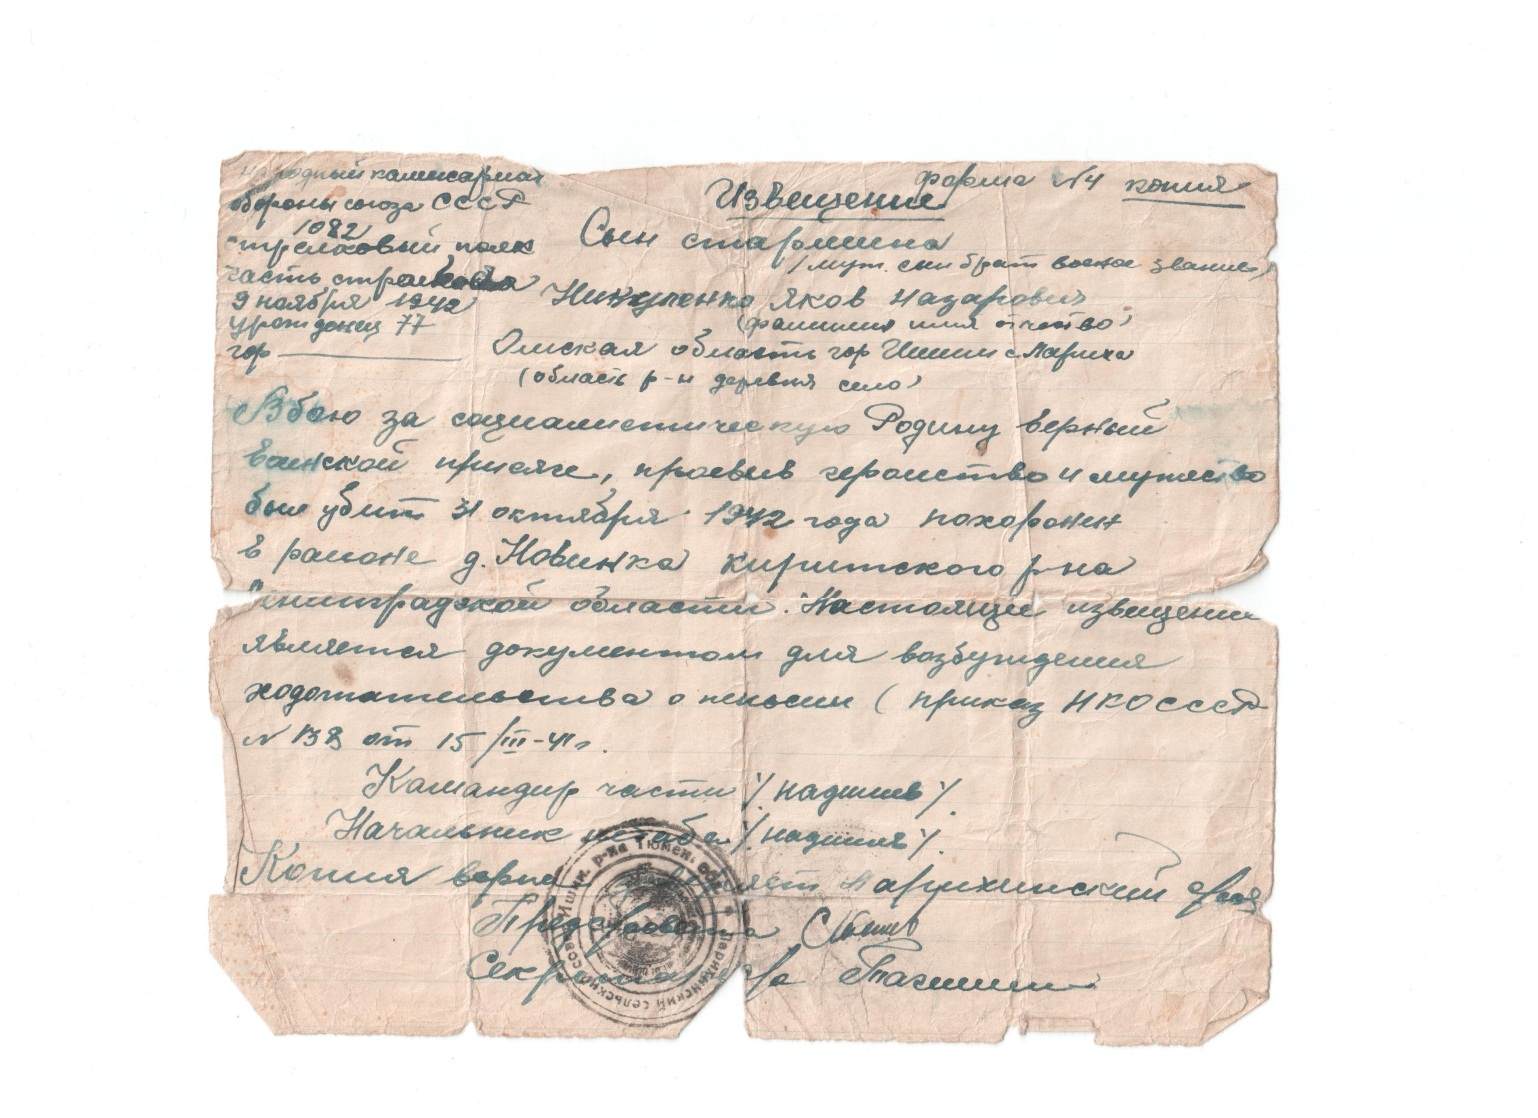 народный комисариат
обороны союза СССР
1082
стрелковый полк
часть
9 ноября 1942
урожденец 77
гор
форма N4 копия
Извещение
Сын старшина
(муж. сын брат военое звание)
Никуленко Яков Назарович
(фамилия имя отчество)
Омская область гор Ишим с Лариха
(область р-н деревня село)
В бою за социалистическую Родину верный
воинской присяге, проевив героиство и мужество
был убит 31 октября 1942 года похоронен
в районе д. Новинка Киришского р-на
Ленинградской области. Настоящие извещение
является документом для возбуждения
ходотательства о пенсии (приказ НКОСССР
N 138 от 15/III-41г.
Командир части /. надпись /.
Начальник штаба /. надпись /.
Копия верна Ларихинский
Предс
Секретарь
Ларихинский сельский совет Ишим. р-на Тюмен. обл.